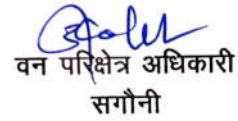 वन परिक्षेत्र अधिकारी
सगौनी